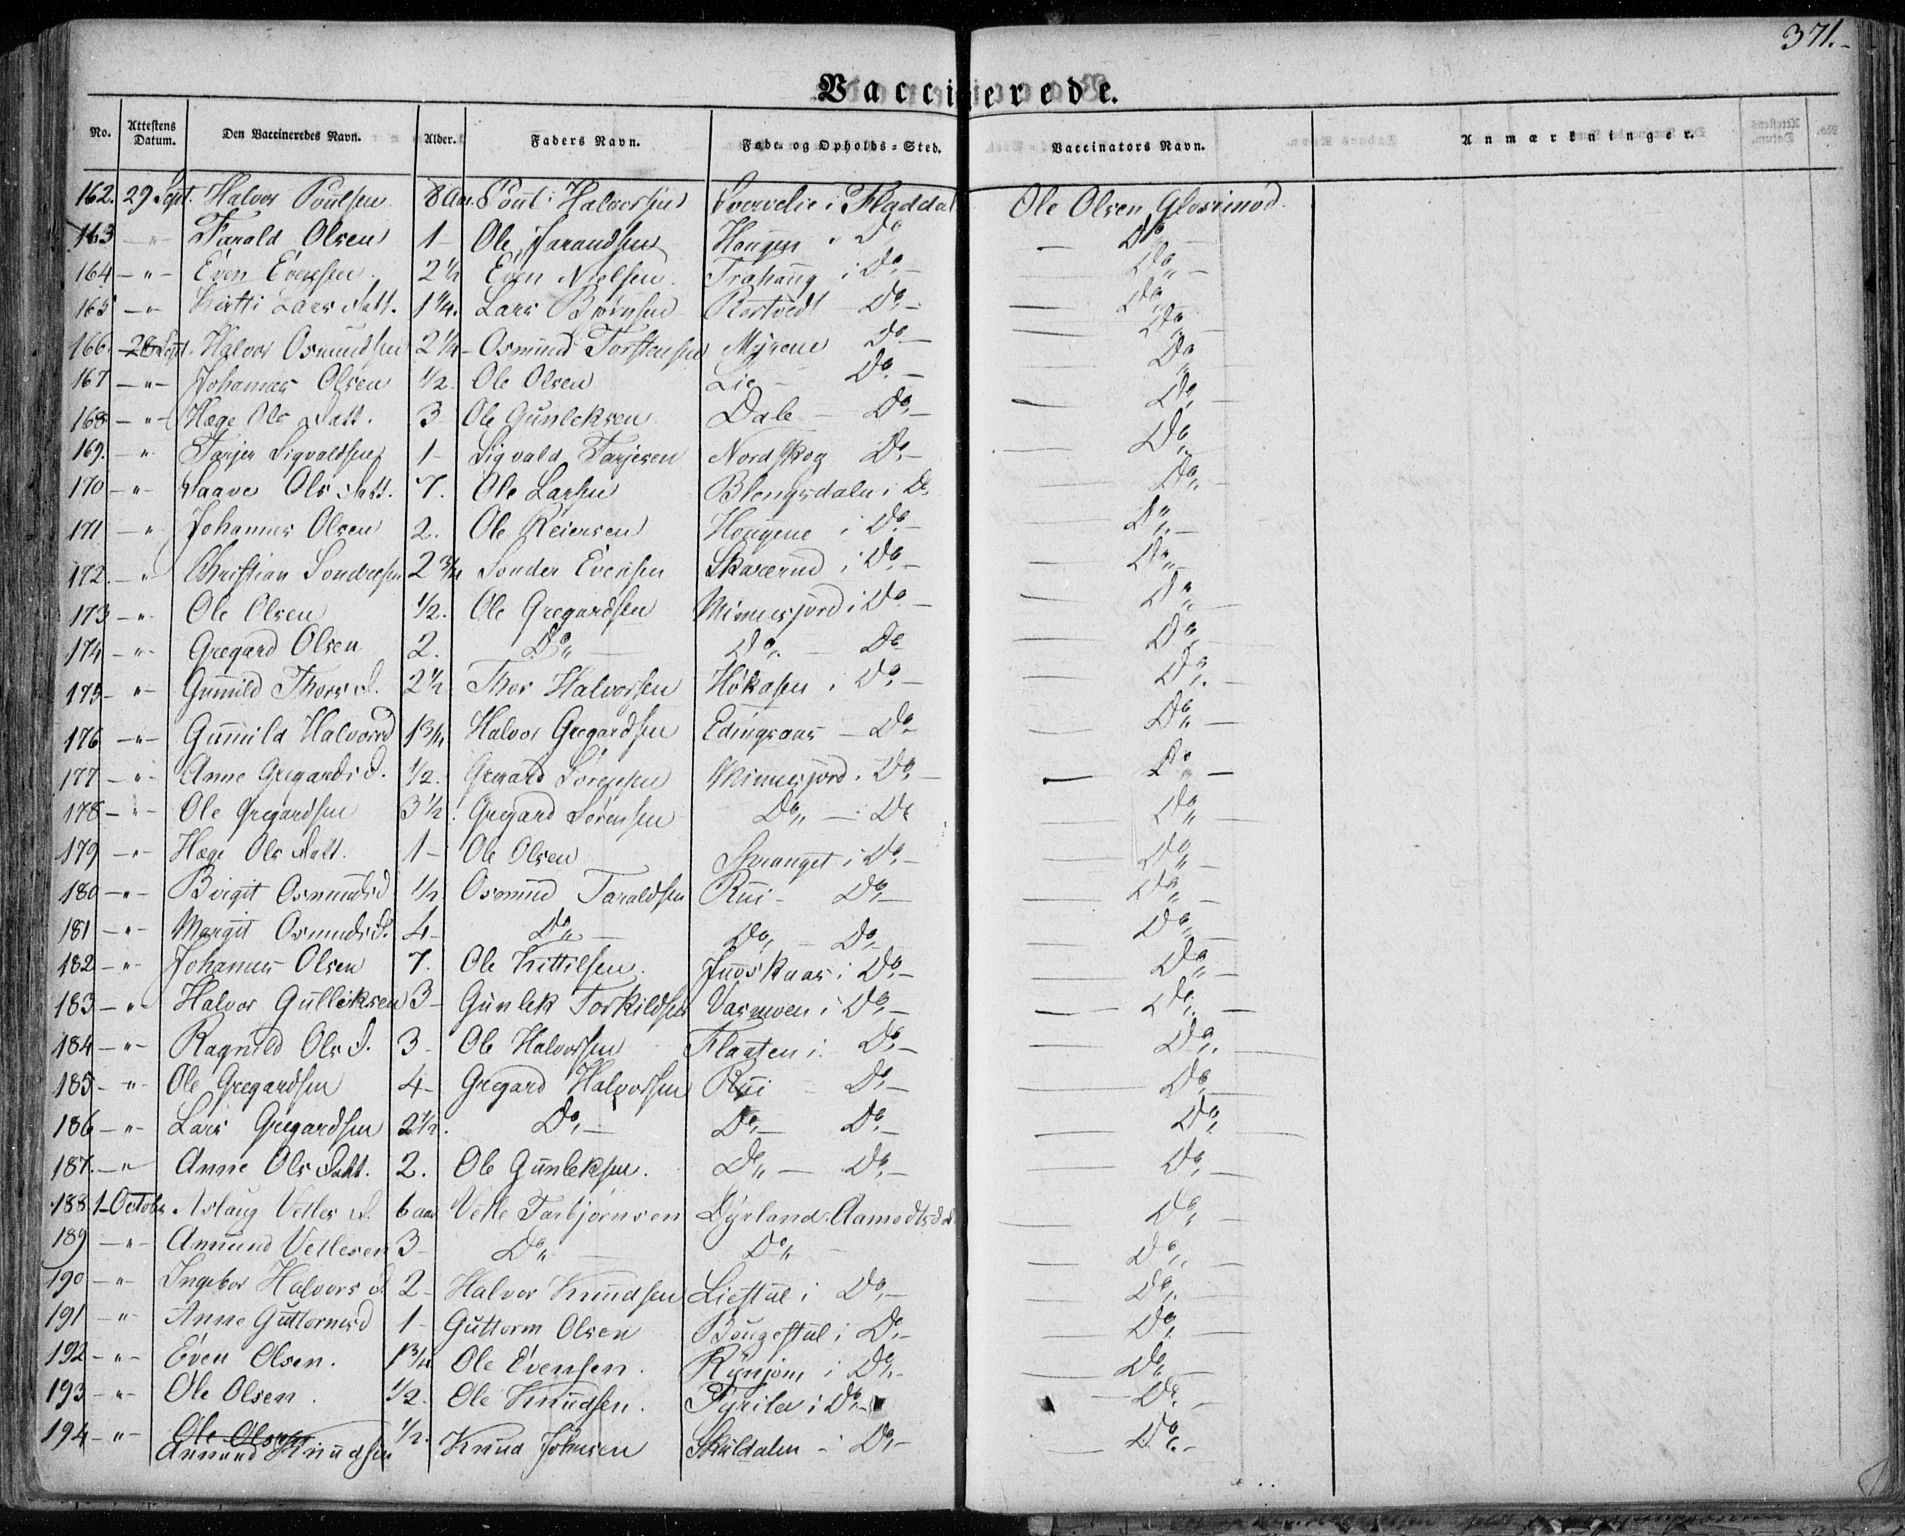 371.
Vaccinerede.
No. Attestens Datum. Den Vaccineredes Navn. Alder. Faders Navn. Føde- og Opholds-Sted. Vaccinators Navn. Anmærkninger.
162. 29 Sept. Halvor Poulsen 8 Aar. Poul Halvorsen i Fladdal Ole Olsen Glosimod.
163 " Tarald Olsen 1 - Ole Jarandsen Haugen i Do — Do —
164 - " - Even Evensen 2 1/2 Even Nielsen Trahaug i Do - — Do " —
165 - " - Kitti Lars Datt. 1 1/4. Lars Bjørnsen Rostvedt Do - — Do
166. 26 Sept. Halvor Osmundsen 2 1/2 - Osmund Torstensen Myrene Do - — Do —
167 - " - Johannes Olsen 1/2. Ole Olsen Lie - Do - — Do
168 - " - Hæge Ols Datt. 3 Ole Gunleksen Dale - Do - — Do —
169. - " Tarjer Sigvaldsen 1 - Sigvald Tarjesen Nordskog Do - — Do
170 - " - Aaave Ols Datt. 7. Ole Larsen Blengsdalen i Do — Do
171 - " Johannes Olsen 2. Ole Reiersen Haugene i Do - — Do —
172. - " Christian Sondresen 2 3/4 Sonder Evensen Skaverud i Do - — Do
173 - " - Ole Olsen 1/2. Ole Gregardsen Minnesjord i Do — Do —
174 - " - Gregard Olsen 2. Do " — Do " - Do — Do
175 - " Gunnild Thors D. 2 1/2 Thor Halvorsen Høkasen i Do — Do.
176 - " - Gunnild Halvorsd 1 3/4 Halvor Gregardsen Edingsaas - Do — Do —
177 - " - Anne Gregards D. 1/2. Gregard Sørensen Minnesjord. Do - — Do " —
178 - " - Ole Gregardsen 3 1/2. Gregard Sørensen Do " - Do — Do
179 - " Hæge Ols Datt. 1 - Ole Olsen Spranget i Do - — Do —
180 - " - Birgit Osmundsd 1/2 Osmund Taraldsen Rui - Do — Do —
181 - " - Margit Osmunds D. 4 - Do " — Do - Do — Do —
182 - " Johannes Olsen 7. Ole Kittilsen. Juvskaas i Do — Do —
183 - " Halvor Gulleiksen 3 - Gunlek Torkildsen Vasmoen i Do — Do. —
184 - " - Ragnild Ols D. 3 - Ole Halvorsen Flaaten i. Do — Do.
185 - " Ole Gregardsen 4 - Gregard Halvorsen Rui - Do — Do
186 - " - Lars Gregardsen 2 1/2. Do - Do - Do — Do
187. - " Anne Ols Datt. 2. Ole Gunleksen. Do " - Do — Do —
188 1 Octobr Aslaug Vetles D. 6 aar Vetle Tarbjørnsen Dyrland. Aamodtsd. Do —
189 - " - Amund Vetlesen 3 - Do " — Do " — Do
190 - " Ingebor Halvors D. 2 - Halvor Knudsen Liestul i Do — Do —
191 - " Anne Guttormsd 1 - Guttorm Olsen Baugestul i Do — Do —
192 - " - Even Olsen. 1 3/4 Ole Evensen. Rynjom i Do — Do —
193 - " Ole Olsen. 1/2. Ole Knudsen. Fyrile i Do — Do —
194 - " Ole Olsen 1/2. Knud Johnsen Skuldalen - Do — Do -
Amund Knudsen